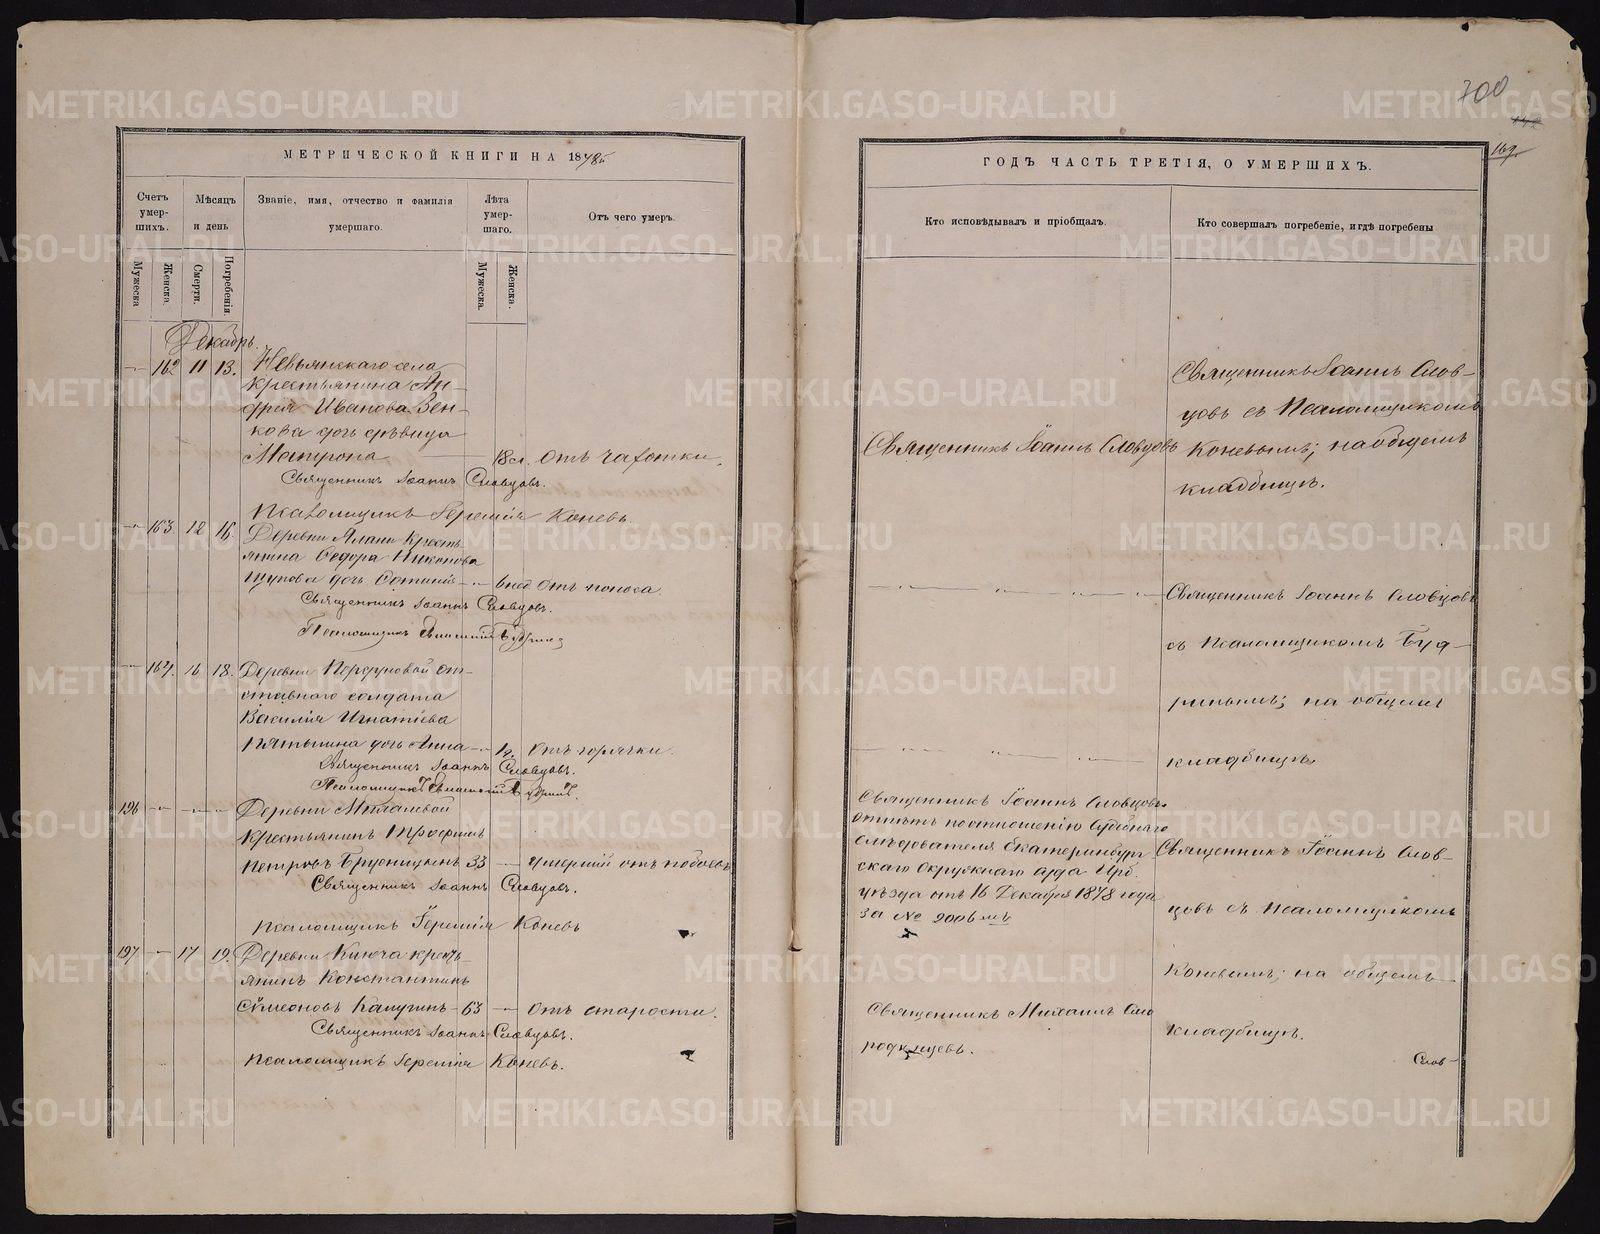 700
169.
МЕТРИЧЕСКОЙ КНИГИ НА 1878й
Счетъ умер-шихъ.
Мѣсяцъ и день
Званіе, имя, отчество и фамилія умершаго.
Лѣта умер-шаго.
Отъ чего умеръ.
Мужеска
Женска.
Смерти.
Погребенія.
Мужеска.
Женска.
Декабрь.
162 11 13. Невьянскаго села
крестьянина Ан-
дрея Иванова Зен-
кова дочь дѣвица
Матрона 18 л. отъ чахотки.
Священникъ Іоаннъ Словцовъ.
Псаломщикъ Іеремія Коневъ.
163 12 16. Деревни Алани кресть
янина Ѳедора Никонова
дочь 6 нед отъ поноса.
Священникъ Іоаннъ Словцовъ.
Псаломщикъ
164. 16 18. Деревни от-
ставного солдата
Василія Игнатіева
дочь Анна отъ горячки.
Священникъ Іоаннъ Словцовъ.
Псаломщикъ
196 Деревни
крестьянинъ Трофимъ
Петровъ Брусницынъ 33 умершій отъ побоевъ
Священникъ Іоаннъ Словцовъ.
Псаломщикъ Іеремія Коневъ
197 17 19. Деревни Ключа кресть-
янинъ Константинъ
Сѵмеоновъ Калугинъ 63 отъ старости.
Священникъ Іоаннъ Словцовъ.
Псаломщикъ Іеремія Коневъ.
ГОДЪ ЧАСТЬ ТРЕТІЯ, О УМЕРШИХЪ.
Кто исповѣдывалъ и пріобщалъ.
Кто совершалъ погребеніе, и гдѣ погребены
Священникъ Іоаннъ Слов-
цовъ съ Псаломщикомъ
Священникъ Іоаннъ Словцовъ Коневымъ; на общемъ
кладбищѣ.
Священникъ Іоаннъ Словцовъ
съ Псаломщикомъ Буд-
ринымъ; на общемъ
кладбищѣ.
Священникъ Іоаннъ Словцовъ
отпѣтъ по отношенію Судебнаго
слѣдователя Екатеринбург-
скаго Окружнаго суда Ирб.
уѣзда отъ 16 Декабря 1878 года
за № 2006мъ
Священникъ Іоаннъ Слов-
цовъ съ Псаломщикомъ
Коневымъ; на общемъ
кладбищѣ.
Священникъ Михаилъ Смо
родинцевъ.
Слов-
METRIKI.GASO-URAL.RU